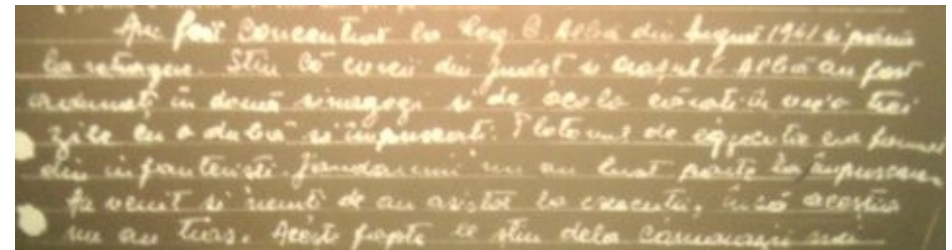 Am fost concentrat la Leg. C. Albă din August 1941 și până
la retragere. Știu că evreii din județ și orașul C. Albă au fost
adunați în două sinagogi și de acolo cărați în vre'o trei
zile cu o dubă și împușcați. Plotonul de execuție era format
din infanteriști. Jandarmii nu au luat parte la împușcare.
Au venit și nemți de au asistat la execuții, însă aceștia
nu au tras. Aceste fapte le știu dela camarazii